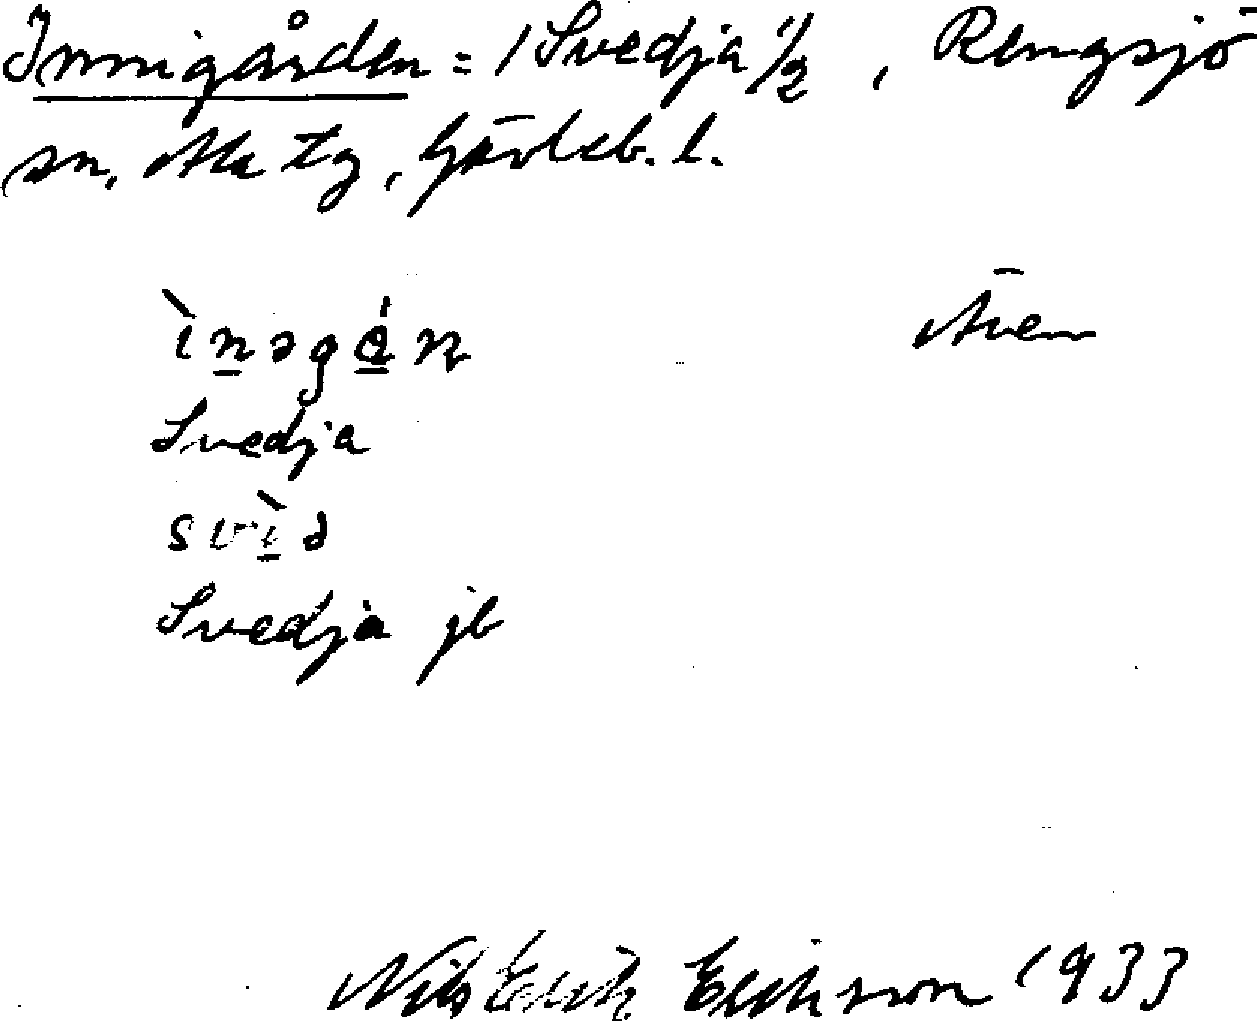 Innigården = /Svedja 1/2, Rengsjö
sn, Ala tg, Gävleb. l.
ìnəgɑ́n Även
Svedja
svìə
Svedja jb
Nils Erik Erikson 1933